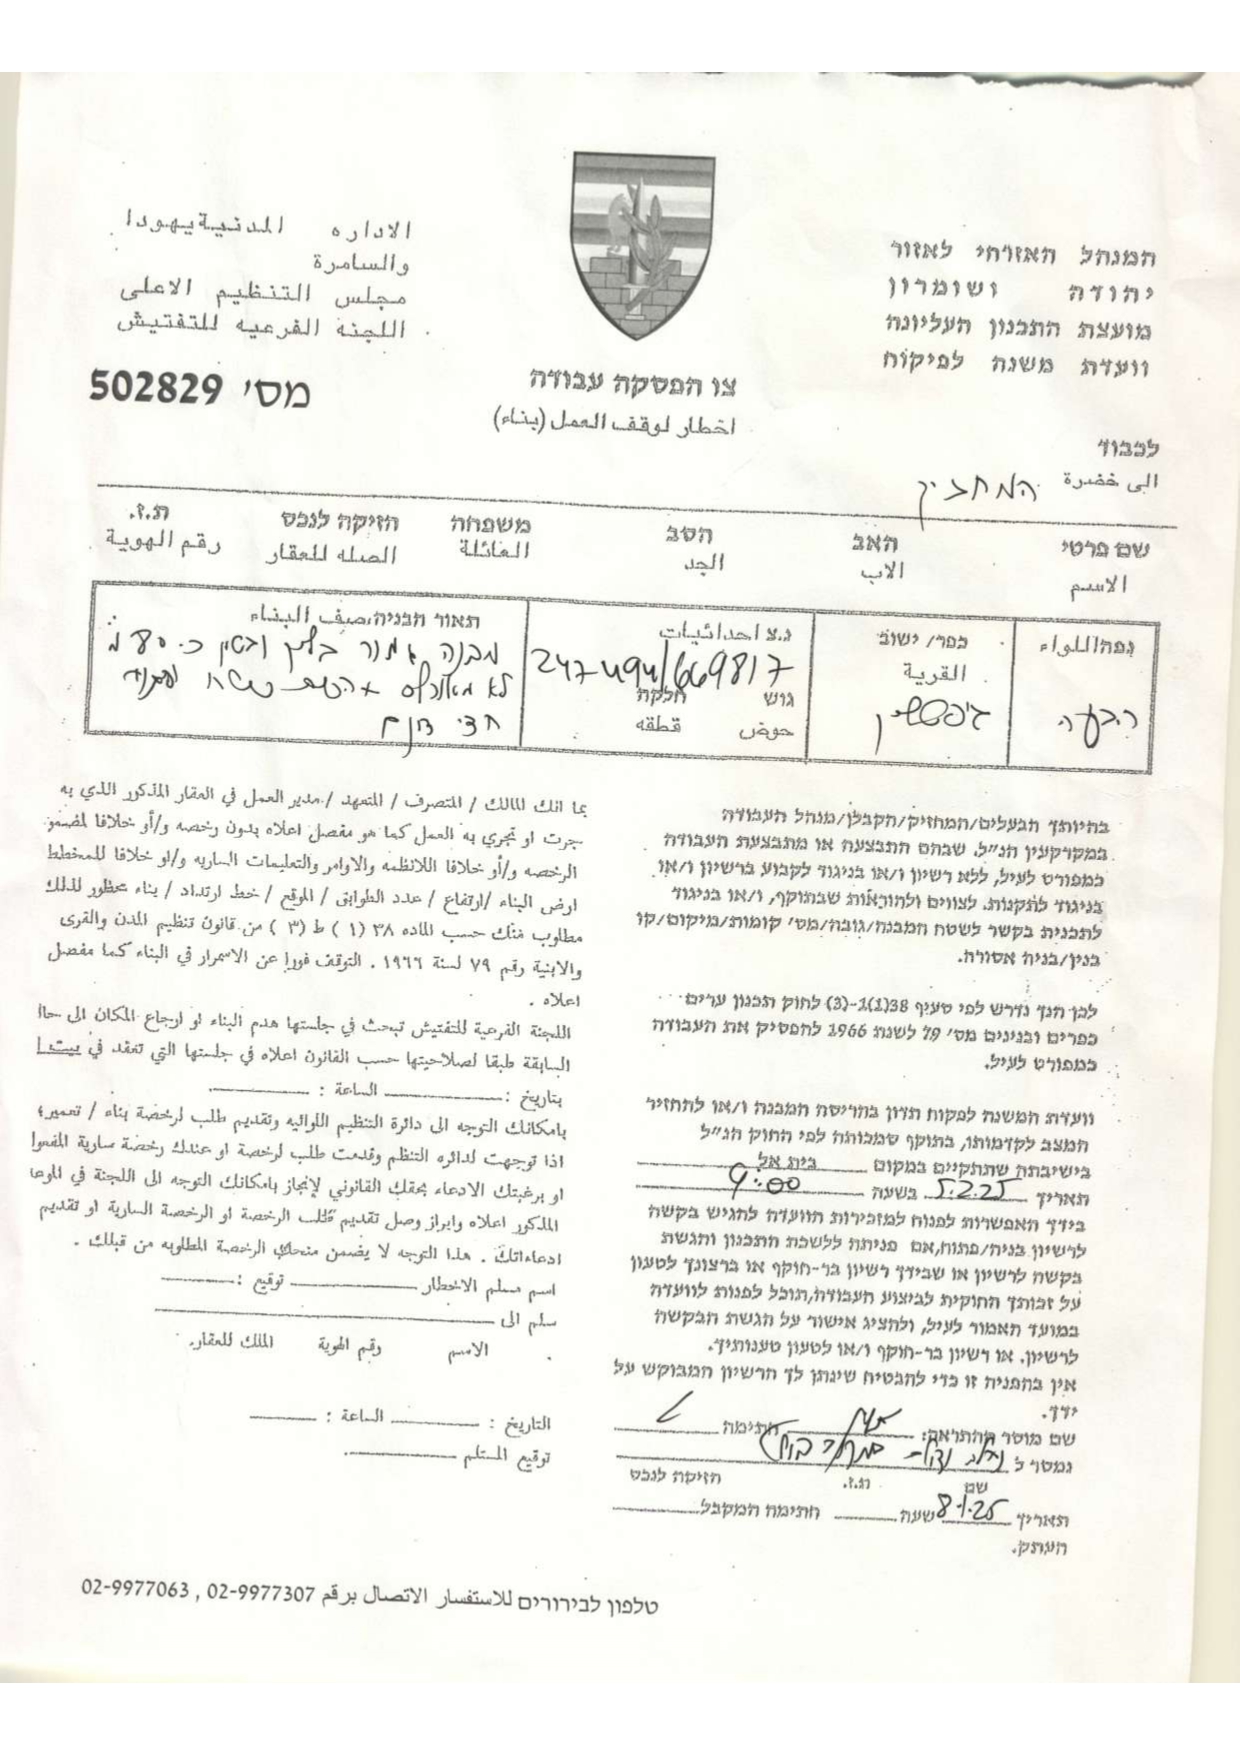 המנהל האזרחי לאזור
יהודה ושומרון
מועצת התכנון העליונה
וועדת משנה לפיקוח
الاداره المدنية يهودا
والسامرة
مجلس التنظيم الاعلى
اللجنه الفرعيه للتفتيش
מס' 502829
צו הפסקה עבודה
اخطار لوقف العمل (بناء)
לכבוד
الى حضرة המחזיק
שם פרטי האב הסב משפחה הזיקה לנכס ת.ז.
الاسم الاب الجد العائلة الصله للعقار رقم الهوية
נפה/اللواء
כפר/ ישוב
القرية
ג'יפטליק
נ.צ احداثيات
247494/669817
גוש חלקה
حوض قطقه
תאור הבניה، صيف البناء
חצי דונם
בהיותך הבעלים/המחזיק/הקבלן/מנהל העבודה
במקרקעין הנ"ל, שבהם התבצעה או מתבצעת העבודה
כמפורט לעיל, ללא רשיון ו/או בניגוד לקבוע ברשיון ו/או
בניגוד לתקנות, לצווים ולהוראות שבתוקף, ו/או בניגוד
לתכנית בקשר לשטח המבנה/גובה/מס' קומות/מיקום/קו
בנין/בניה אסורה.
לכן הנך נדרש לפי סעיף 38(1)1-(3) לחוק תכנון ערים
כפרים ובנינים מס' 79 לשנת 1966 להפסיק את העבודה
כמפורט לעיל.
וועדת המשנה לפקוח תדון בהריסת המבנה ו/או להחזיר
המצב לקדמותו, בתוקף סמכותה לפי החוק הנ"ל
בישיבתה שתתקיים במקום בית אל
תאריך 5.2.25 בשעה 9:00
בידך האפשרות לפנות למזכירות הוועדה להגיש בקשה
לרשיון בניה/פתוח, אם פניתה ללשכת התכנון והגשת
בקשה לרשיון או שבידך רשיון בר-חוקף או ברצונך לטעון
על זכותך החוקית לביצוע העבודה, תוכל לפנות לוועדה
במועד האמור לעיל, ולהציג אישור על הגשת הבקשה
לרשיון. או רשיון בר-חוקף ו/או לטעון טענותיך.
אין בהפניה זו כדי להבטיח שינתן לך הרשיון המבוקש על
ידך.
שם מוסר ההתראה: חתימה
נמסר ל
שם ת.ז. הזיקה לנכס
תאריך 8.1.25 שעה חתימה המקבל
העתק.
بما انك المالك / المتصرف / المتعهد / مدير العمل في العقار المذكور الذي به
جرت او تجري به العمل كما هو مفصل اعلاه بدون رخصه و/أو خلافا لمضمو
الرخصه و/أو خلافا للانظمه والاوامر والتعليمات الساريه و/او خلافا للمخطط
ارض البناء /ارتفاع / عدد الطوابق / الموقع / خط ارتداد / بناء محظور لذلك
مطلوب منك حسب الماده ٣٨ ( ١ ) ط ( ٣ ) من قانون تنظيم المدن والقرى
والابنية رقم ٧٩ لسنة ١٩٦٦ . التوقف فورا عن الاسمرار في البناء كما مفصل
اعلاه .
اللجنة الفرعية للتفتيش تبحث في جلستها هدم البناء او ارجاع المكان الى حالا
السابقة طبقا لصلاحيتها حسب القانون اعلاه في جلستها التي تعقد في بيت ا
بتاريخ : الساعة :
بامكانك التوجه الى دائرة التنظيم اللوائيه وتقديم طلب لرخصة بناء / تعمير؛
اذا توجهت لدائره التنظم وقدمت طلب لرخصة او عندك رخصة سارية المفعوا
او برغبتك الادعاء بحقك القانوني لإنجاز بامكانك التوجه الى اللجنة في الموعا
المذكور اعلاه وابراز وصل تقديم طلب الرخصة او الرخصة السارية او تقديم
ادعاءاتك . هذا التوجه لا يضمن منحك الرخصة المطلوبه من قبلك .
اسم مسلم الاخطار توقيع :
سلم الى
الاسم رقم الهوية المالك للعقار.
التاريخ : الساعة :
توقيع المستلم
טלפון לבירורים للاستفسار الاتصال برقم 02-9977307 , 02-9977063